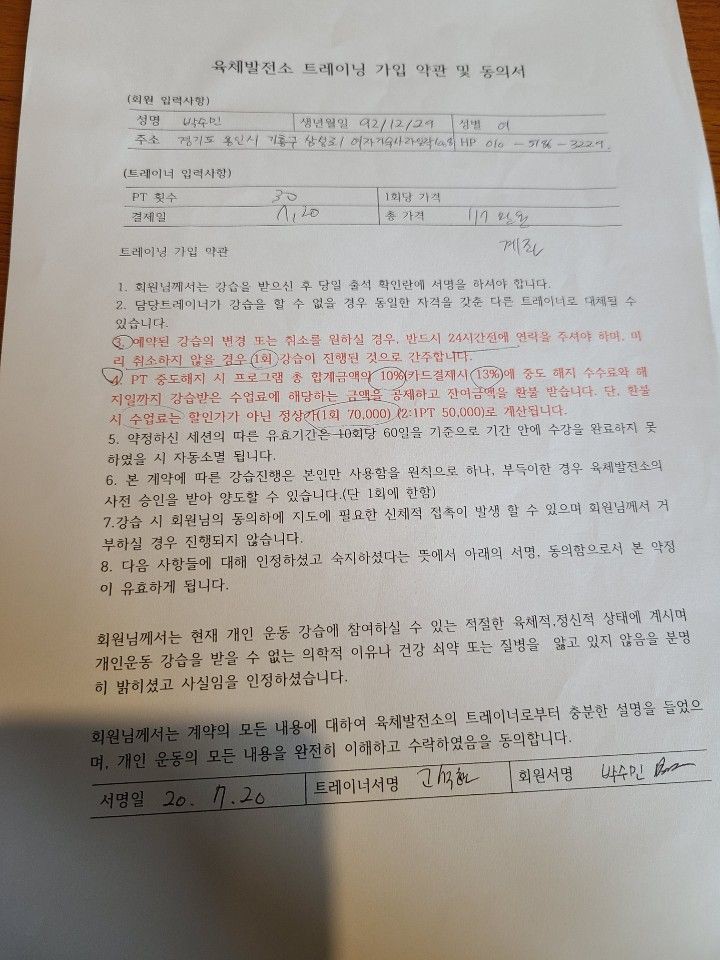 육체발전소 트레이닝 가입 약관 및 동의서
(회원 입력사항)
성명 박수민 생년월일 92/12/29 성별 여
주소 경기도 용인시 기흥구 삼성로1 여자기숙사 HP 010 - 5186 - 3229.
(트레이너 입력사항)
PT 횟수 30 1회당 가격
결제일 7, 20 총 가격 117 만원
트레이닝 가입 약관 계좌
1. 회원님께서는 강습을 받으신 후 당일 출석 확인란에 서명을 하셔야 합니다.
2. 담당트레이너가 강습을 할 수 없을 경우 동일한 자격을 갖춘 다른 트레이너로 대체될 수
있습니다.
3. 예약된 강습의 변경 또는 취소를 원하실 경우, 반드시 24시간전에 연락을 주셔야 하며, 미
리 취소하지 않을 경우 1회 강습이 진행된 것으로 간주합니다.
4. PT 중도해지 시 프로그램 총 합계금액의 10%(카드결제시 13%)에 중도 해지 수수료와 해
지일까지 강습받은 수업료에 해당하는 금액을 공제하고 잔여금액을 환불 받습니다. 단, 환불
시 수업료는 할인가가 아닌 정상가(1회 70,000) (2:1PT 50,000)로 계산됩니다.
5. 약정하신 세션의 따른 유효기간은 10회당 60일을 기준으로 기간 안에 수강을 완료하지 못
하였을 시 자동소멸 됩니다.
6. 본 계약에 따른 강습진행은 본인만 사용함을 원칙으로 하나, 부득이한 경우 육체발전소의
사전 승인을 받아 양도할 수 있습니다.(단 1회에 한함)
7.강습 시 회원님의 동의하에 지도에 필요한 신체적 접촉이 발생 할 수 있으며 회원님께서 거
부하실 경우 진행되지 않습니다.
8. 다음 사항들에 대해 인정하셨고 숙지하셨다는 뜻에서 아래의 서명, 동의함으로서 본 약정
이 유효하게 됩니다.
회원님께서는 현재 개인 운동 강습에 참여하실 수 있는 적절한 육체적,정신적 상태에 계시며
개인운동 강습을 받을 수 없는 의학적 이유나 건강 쇠약 또는 질병을 앓고 있지 않음을 분명
히 밝히셨고 사실임을 인정하셨습니다.
회원님께서는 계약의 모든 내용에 대하여 육체발전소의 트레이너로부터 충분한 설명을 들었으
며, 개인 운동의 모든 내용을 완전히 이해하고 수락하였음을 동의합니다.
서명일 20. 7. 20 트레이너서명 회원서명 박수민